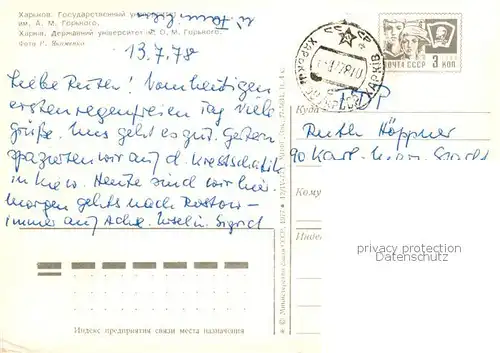 Харьков. Государственный
им. А. М. Горького.
Харків. Державний університет О. М. Горького.
Фото Р. Якименко
13.7.78
Liebe Ruth! Vom heutigen
ersten regenfreien Tag viele
Grüße. Uns geht es gut. Gestern
spazierten wir auf d. Krestschatik
in Kiew. Heute sind wir hier.
Morgen gehts nach Rostow –
immer auf Achse. Sigrid
ПОЧТА СССР 3 КОП.
ХАРКІВ
DDR
Куда
Ruth Höppner
90 Karl-Marx-Stadt
Кому
privacy protection
www.ansichtskarten-center.de
Индекс предприятия связи места назначения
© Министерство связи СССР, 1977